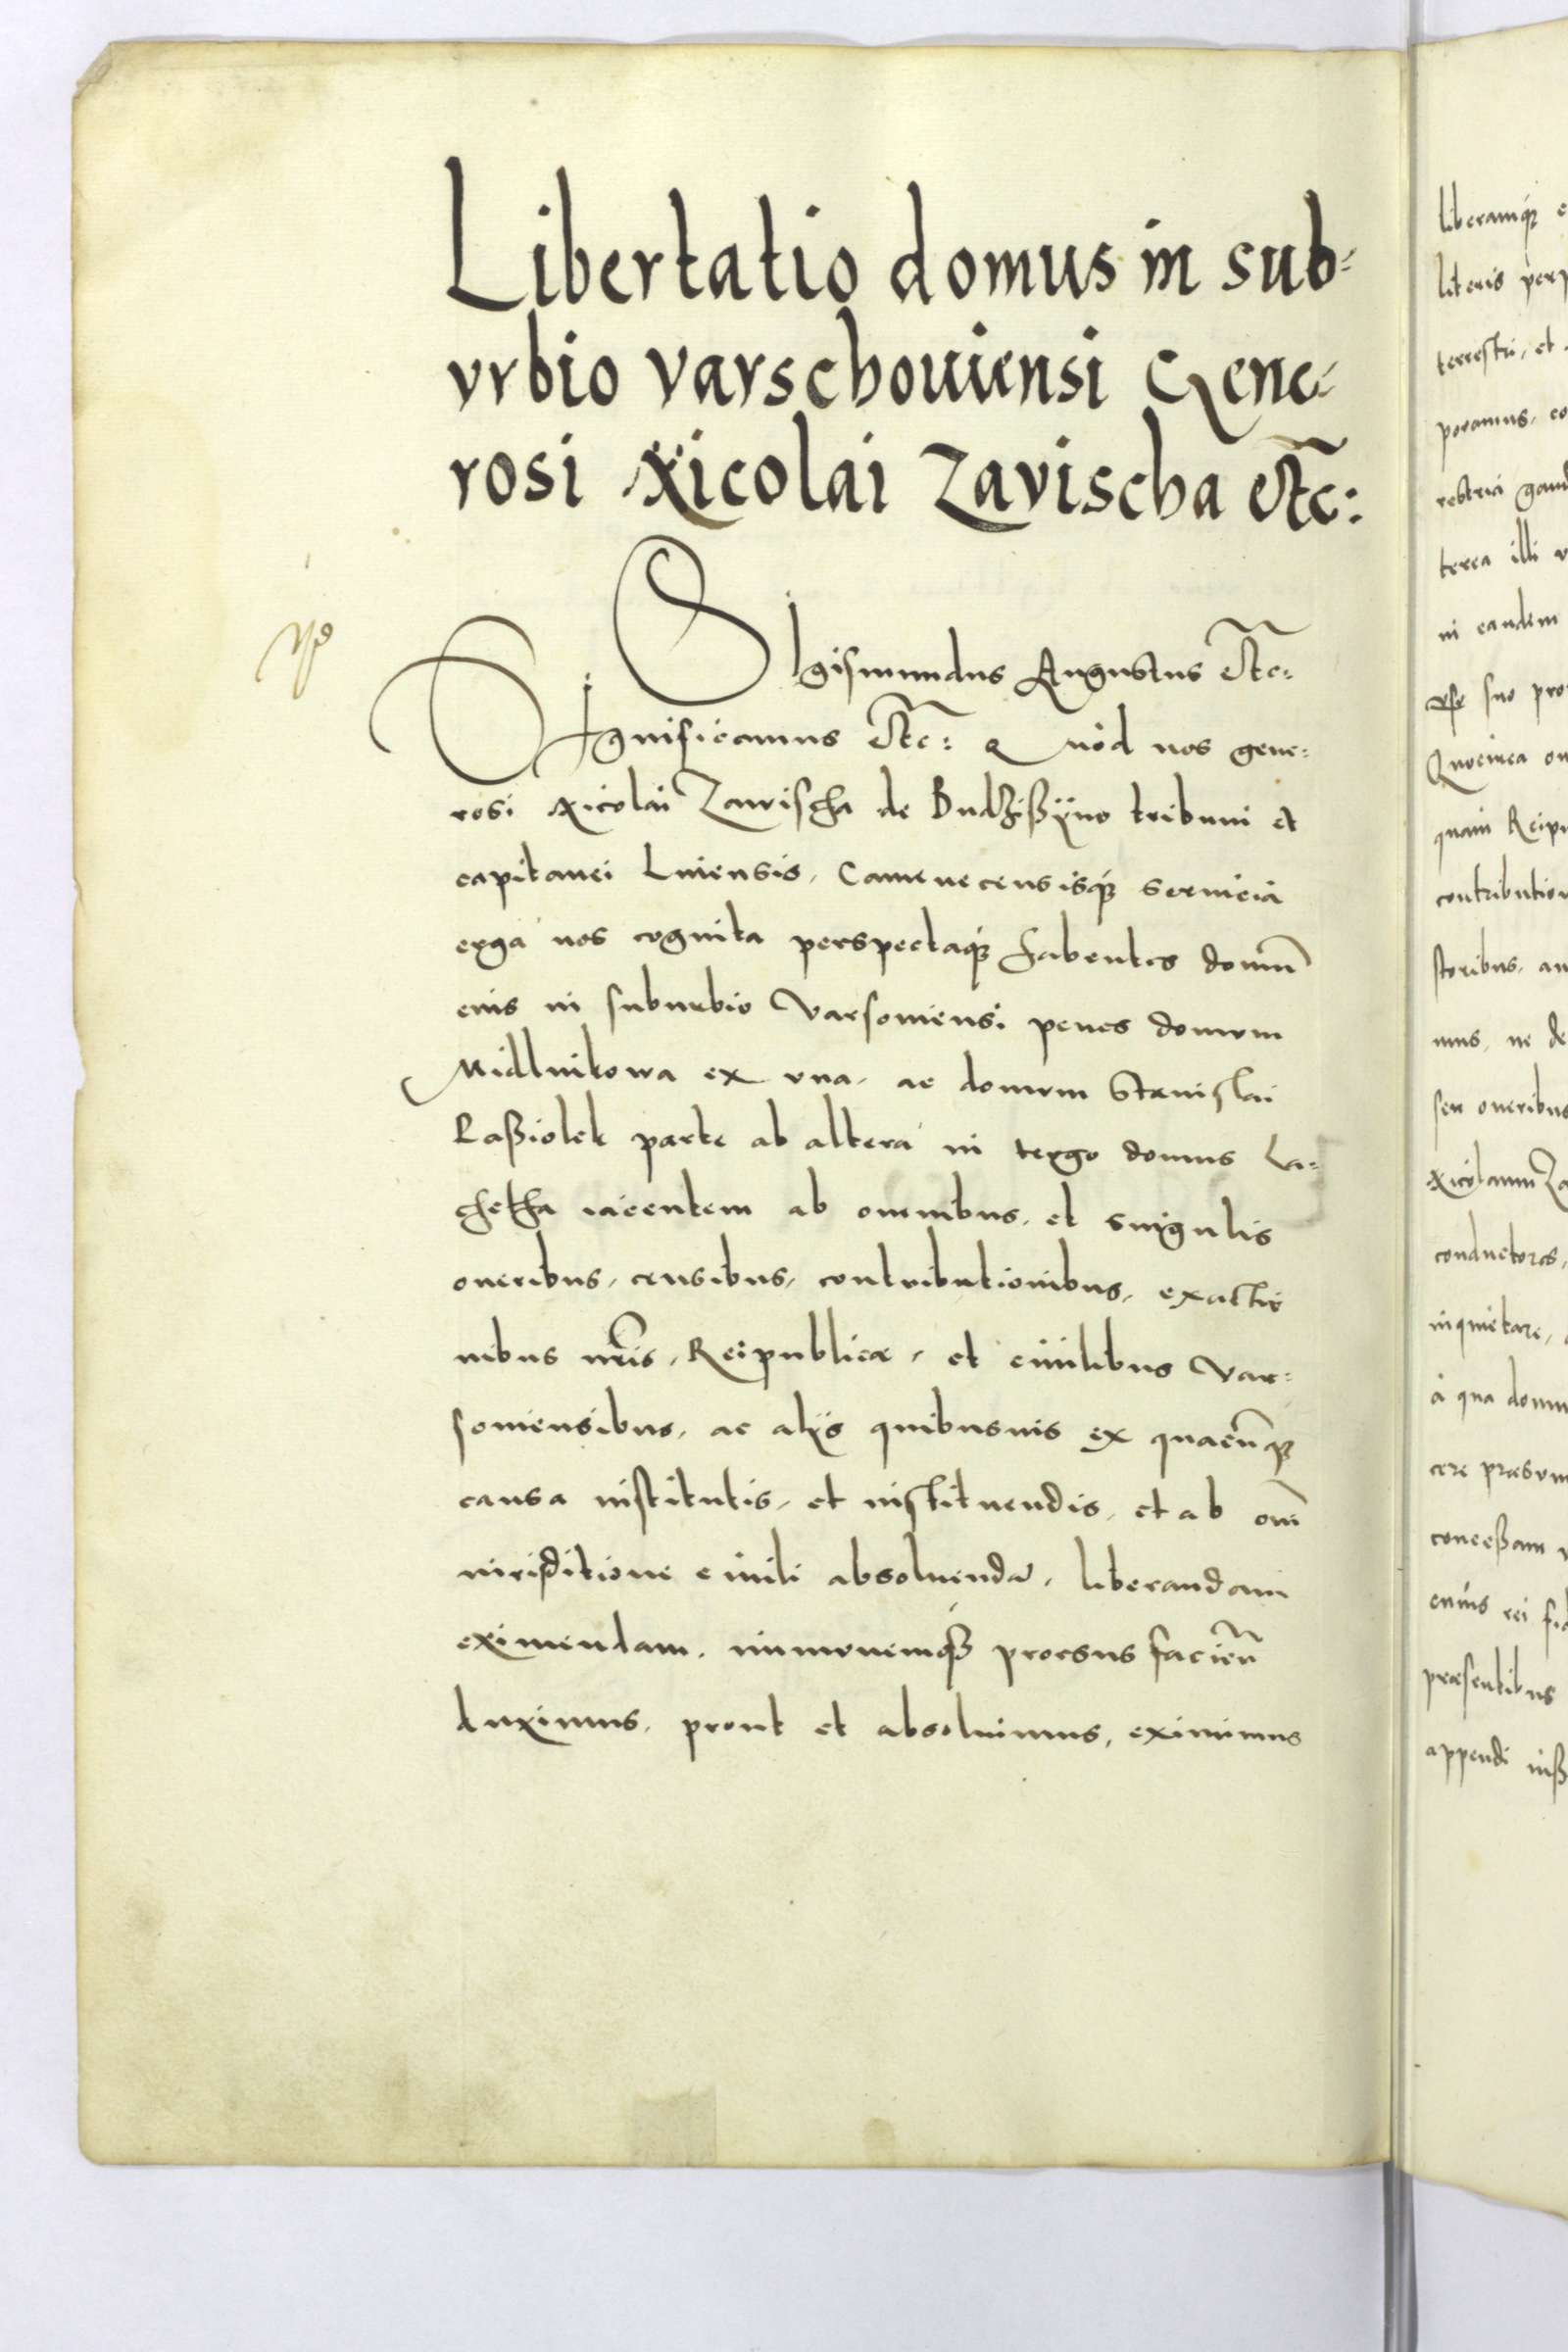 Libertatio domus in sub=
vrbio varschouiensi Gene=
rosi Nicolai Zavischa etc:
Sigismundus Augustus etc:
Significamus etc: Quòd nos gene=
rosi Nicolai Zawischa de Budzißyno tribuni et
capitanei Liuensis, Camenecensisq́ꝫ seruicia
erga nos cognita perspectaq́ꝫ habentes domũ
eius in suburbio Varsouiensi penes domum
Midlnikowa ex vna, ac domum Stanislai
Laßiolek parte ab altera in tergo domus La=
chetha iacentem ab omnibus, et singulis
oneribus, censibus, contributionibus, exactio
nibus nr̃is, Reipublicæ, et ciuilibus Var=
souiensibus, ac alijs quibusuis ex quacũqꝫ
causa institutis, et instituendis, et ab om̃i
iurisditione ciuili absoluendã, liberandam
eximendam, immunemq́ꝫ prorsus facieñ
duximus, prout et absoluimus, eximimus
liberamq́ꝫ
literis
terrestri, et
poramus,
restria
terea illi
in eandem
suo
Quocirca
quam
contribution
storibus,
mus, ne de
seu oneribus
Nicolaum Za
conductores,
inquietare,
à qua domu
cere præsum
conceßam
cuius rei fid
præsentibus
appendi iuß